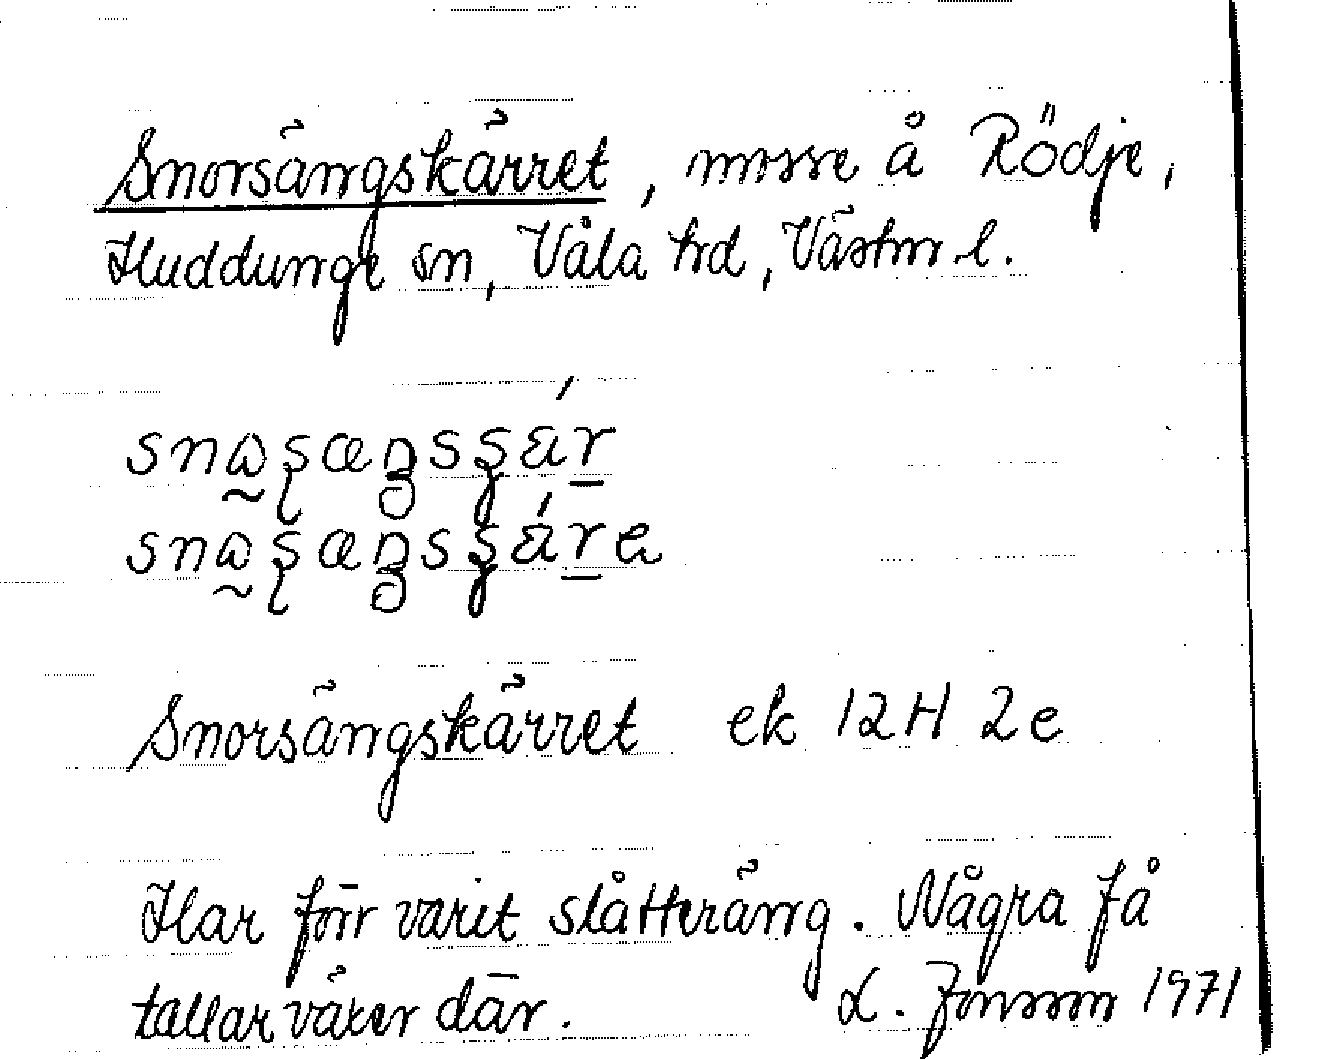 Snorsängskärret, mosse å Rödje,
Huddunge sn, Våla hd, Västm l.
Snorsängskärret ek 12H 2e
Har förr varit slåtteräng. Några få
tallar växer där. L. Jonsson 1971